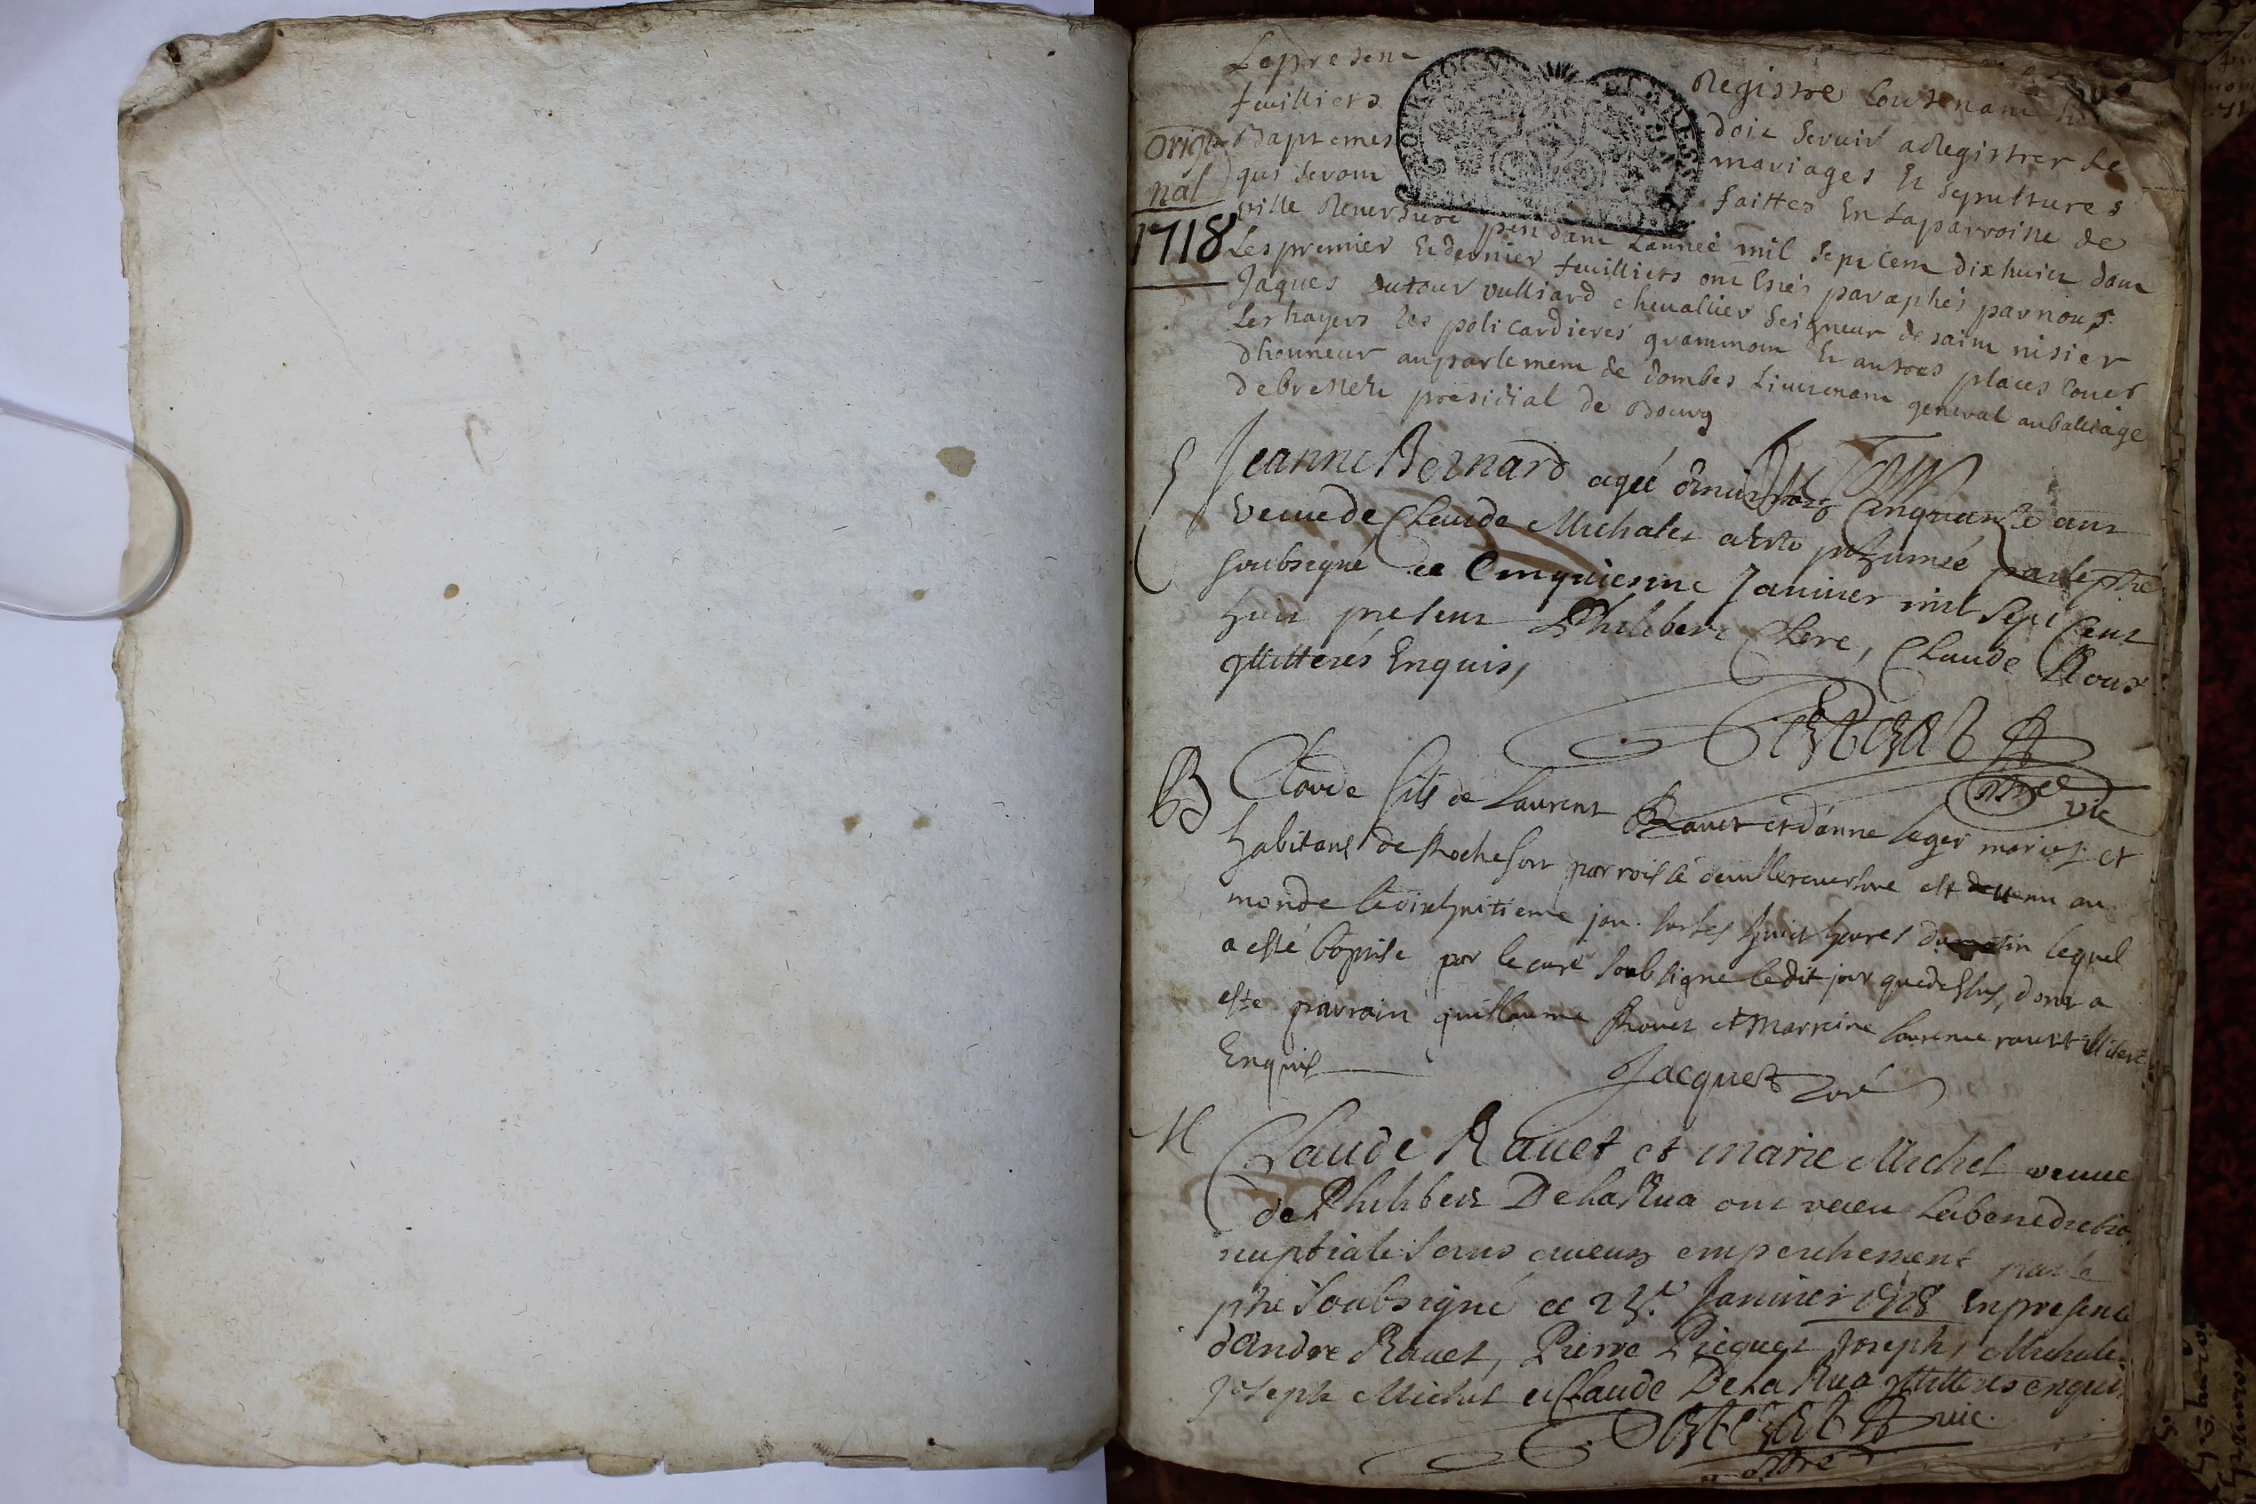 Original
1718
Le present Registre Contenant
feuilliers doit servir a Registrer Le
Baptemes mariages Et Sepultures
qui seront faittes En La parroisse de
ville Reversure pendant Lannee mil sept cent dix huict dont
Les premier Et dernier feuilliers ont Estés paraphés par nous
Jaques Dutour Vulliard chevallier Seigneur de saint nisier
Les hayers les policardieres grammont Et autres places Coner
dhonneur au parlement de dombes Lieutenant general au balliage
de bresse Et presidial de Bourg
Dutour
S Jeanne Bernard agée Cinquante ans
veuve de Claude Michalet a esté inhumée par le pbre
soubsigné ce Cinquiesme Janvier mil Sept Cent
huit present Philibert Clere, Claude Roux
Illitterés Enquis,
pbre vic
B Claude fils de Laurent Ravet et d'anne leger mariez et
habitans de Rochefort parroisse de villereversure est venu au
monde le dixhuitieme jan. sur les huit heures du matin lequel
a esté baptisé par le curé soubsigne le dit jour que dessus, dont a
este parrain guillaume Rovet et Marreine laurence ravet Illiterés
Enquis
Jacquet Curé
M Claude Ravet et marie Michel veuve
de Philibert De La Rua ont receu La benediction
nuptiale sans aucun empechement par le
pbre soubsigné ce 25.e Janvier 1718 En presence
d'andre Ravet, Pierre Picquet Joseph Michale
Joseph Michel et Claude De La Rua Illitteres enquis
vic.
pbre